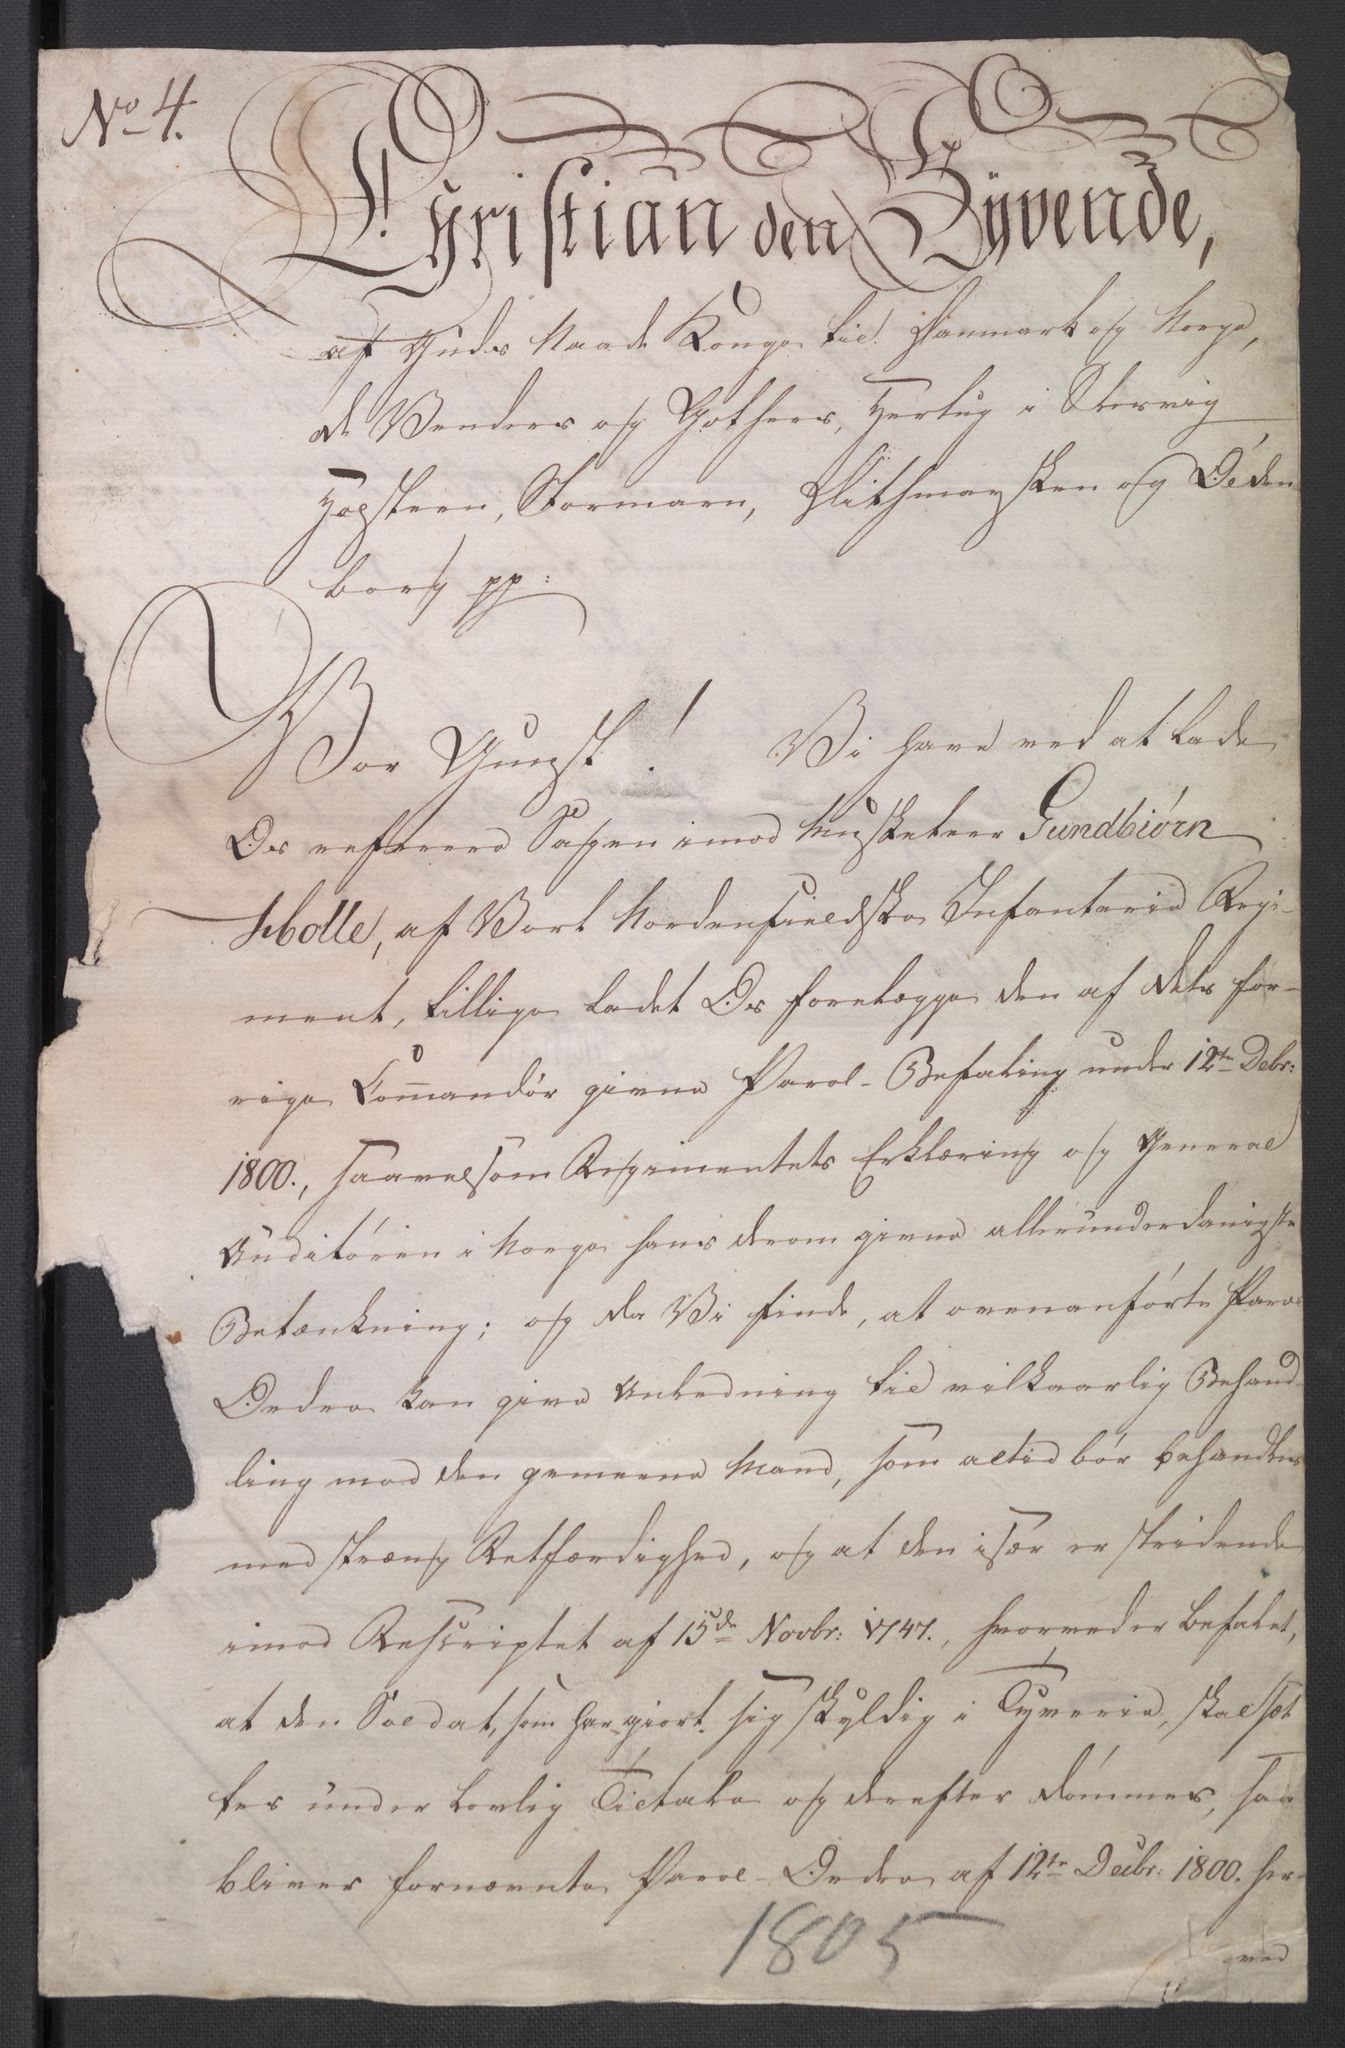 No 4.
Christian den Syvende,
af Guds Naade Konge til Danmark og Norge,
de Venders og Gothers, Hertug i Slesvig
Holsteen, Stormarn, Dithmarsken og Olden-
borg pp:
Vor Gunst! Vi have ved at lade
Os referere Sagen imod Musketeer Gundbiørn
Molle, af Vort Nordenfieldske Infanterie Regi-
ment, tillige ladet Os forelægge den af dets for-
rige Commandør givne Parol-Befaling under 12te Debr:
1800., saavelsom Regimentets Erklæring og General
Auditøren i Norge hans derom givne allerunderdanigste
Betænkning; og da Vi finde, at ovenanførte Parol
Ordre kan give Anledning til vilkaarlig Behand-
ling mod den gemeene Mand, som altid bør behandles
med stræng Retfærdighed, og at den især er stridende
imod Rescriptet af 15de Novbr: 1747., hvorved er befalet,
at den Soldat, som har giort sig skyldig i Tyverie, skal sæt
tes under lovlig Tiltale og derefter dømmes, saa
bliver fornævnte Parol-Ordre af 12te Decbr: 1800. her-
ved
1805